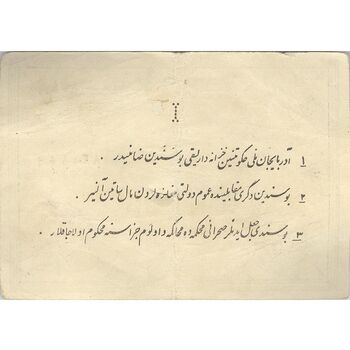 ۱ آذربایجان ملی حکومتینین خزانه داریقی بو سندین ضامنیدر .
۲ بو سندین دگری مقابلینده عموم دولتی مغازه لردن مال ساتین آلنیر .
۳ بو سندی جعل ایدنلر صحرائی محکمه ده محاکمه و اولوم جزاسنه محکوم اولاجاقلار .